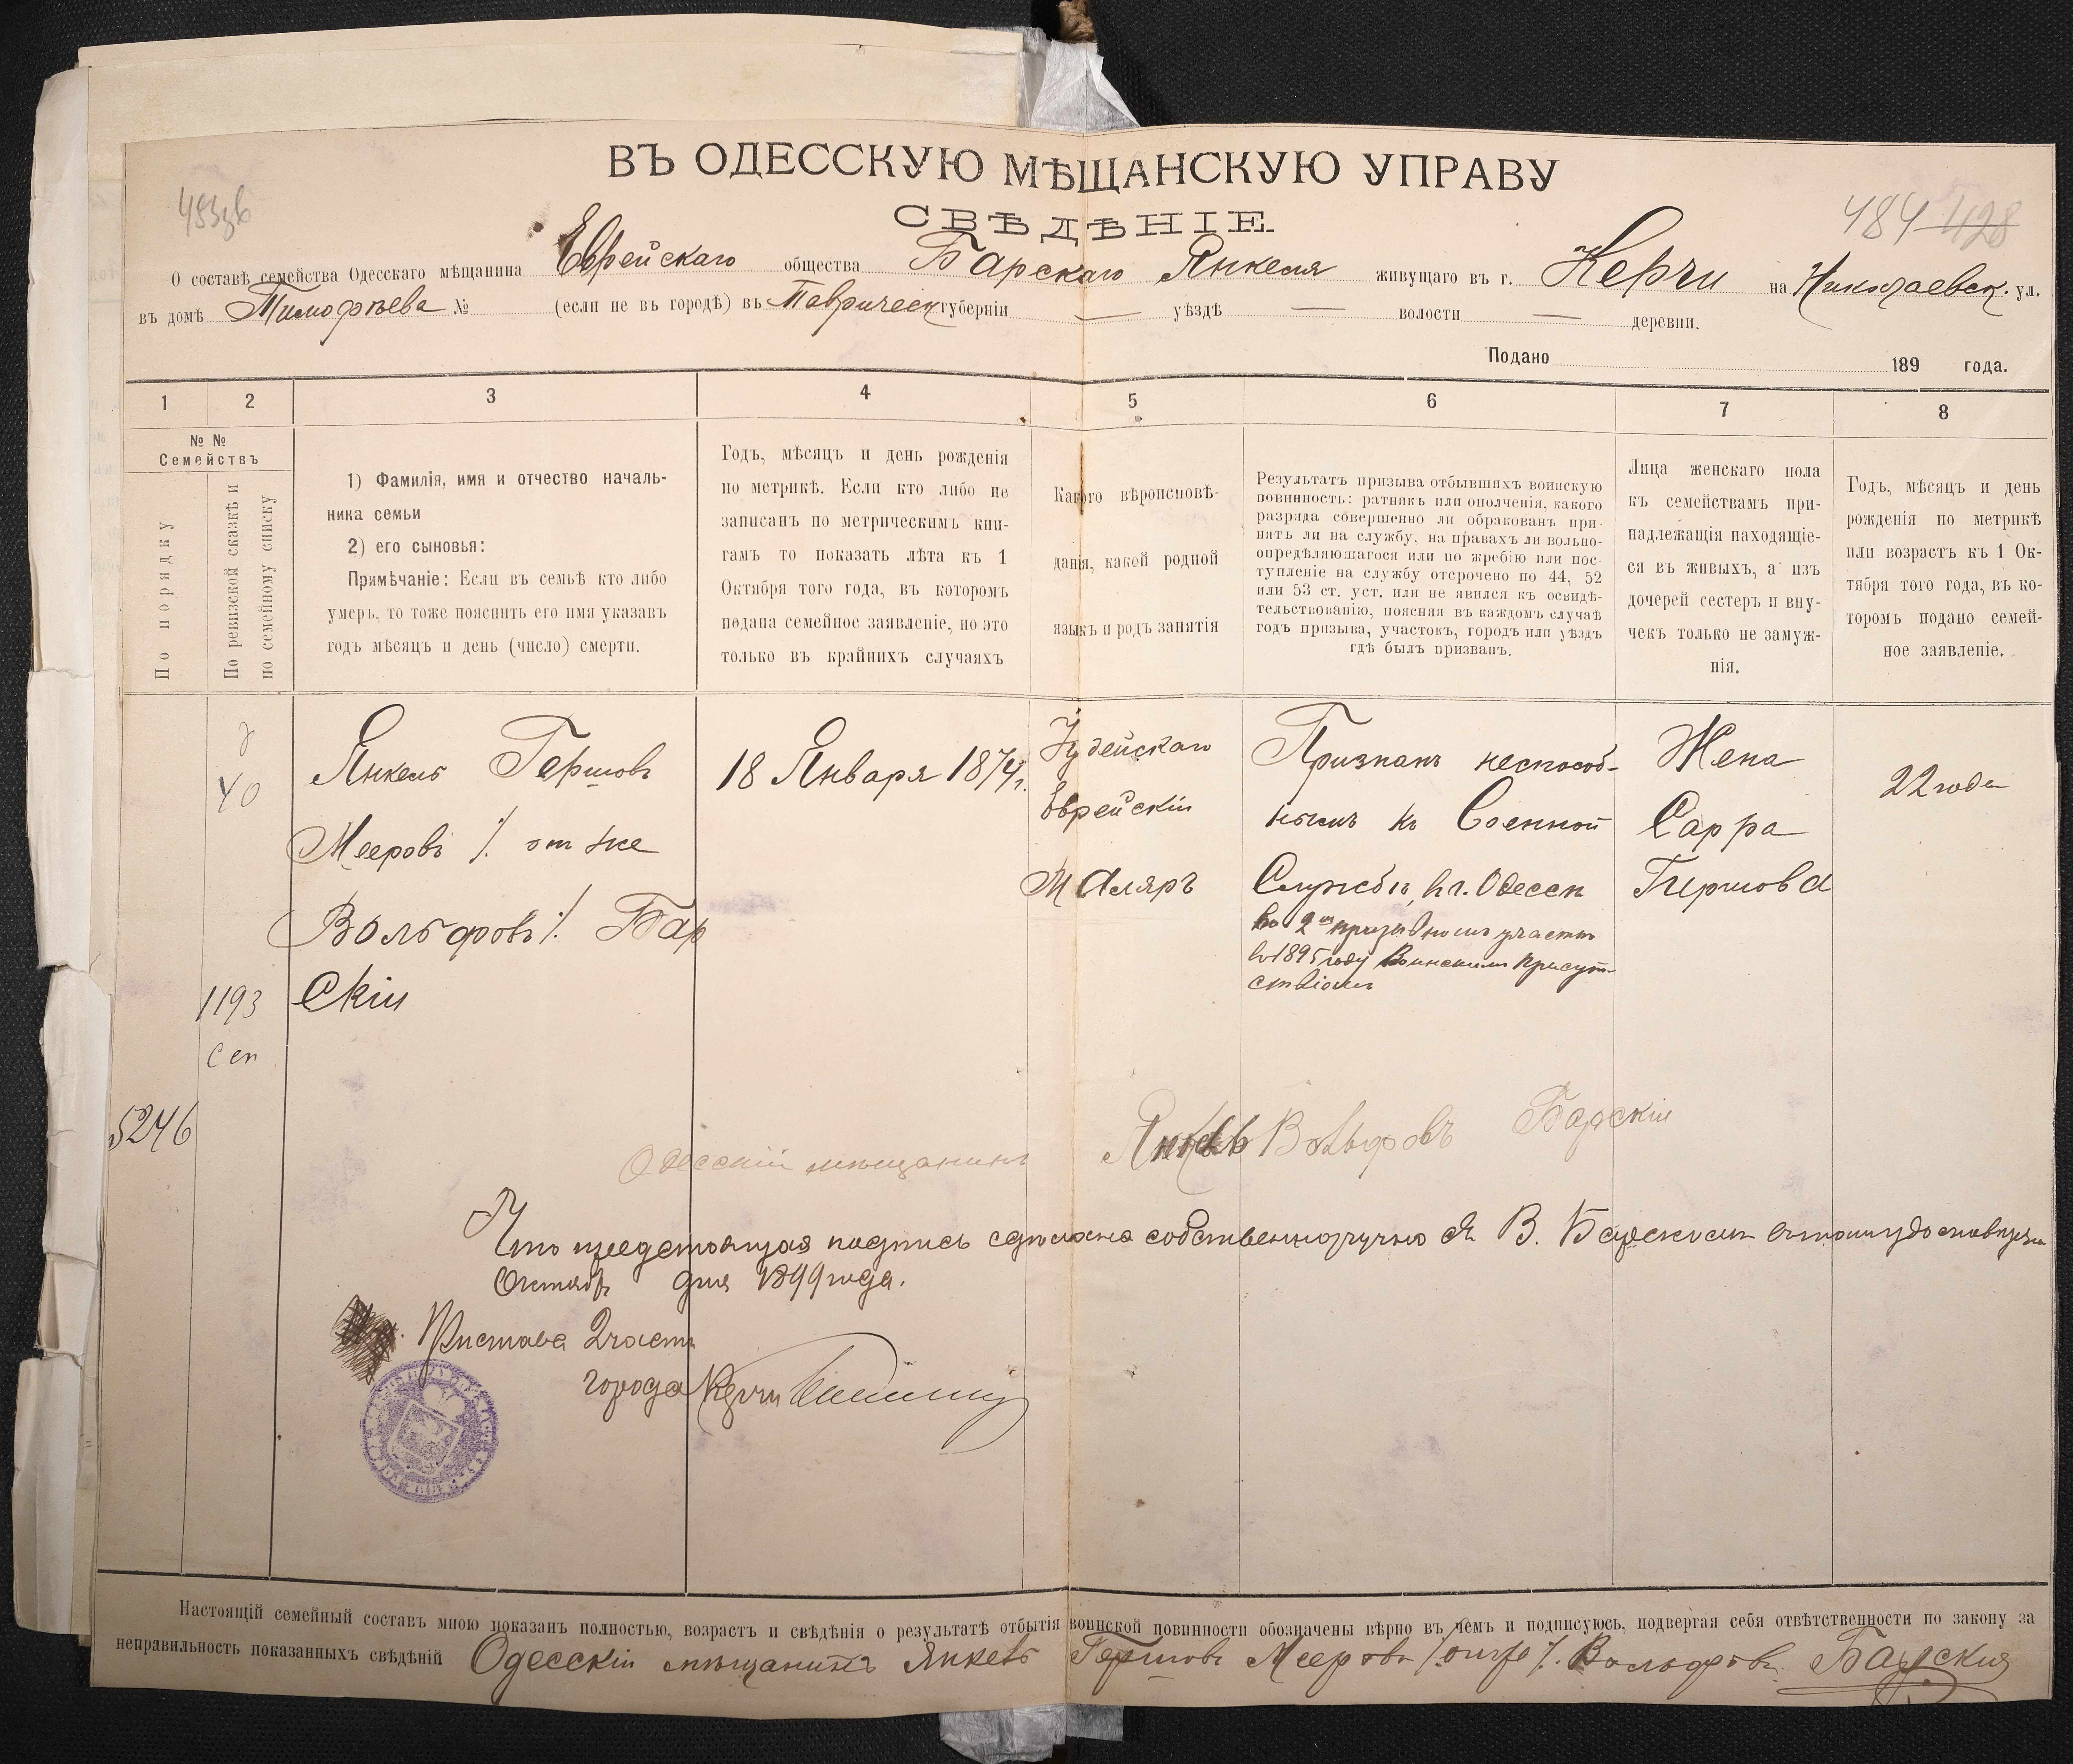 ВЪ ОДЕССКУЮ МѢЩАНСКУЮ УПРАВУ
СВѢДѢНІЕ
484 428
О составѣ семейства Одесскаго мѣщанина Еврейскаго общества Барскаго Янкеля живущаго въ г. Керчи на Николаевск. ул.
въ домѣ Тимофѣева № (если не въ городѣ) въ Таврическ губерніи — уѣздѣ — волости — деревни.
Подано 189 года.
1 2 3 4 5 6 7 8
№ №
Семействъ
По порядку
По ревизской сказкѣ и
по семейному списку
1) Фамилія, имя и отчество началь-
ника семьи
2) его сыновья:
Примѣчаніе: Если въ семьѣ кто либо
умеръ, то тоже пояснить его имя указавъ
годъ мѣсяцъ и день (число) смерти.
Годъ, мѣсяцъ и день рожденія
по метрикѣ. Если кто либо не
записанъ по метрическимъ кни-
гамъ то показать лѣта къ 1
Октября того года, въ которомъ
подана семейное заявленіе, но это
только въ крайнихъ случаяхъ
Какого вѣроисповѣ-
данія, какой родной
языкъ и родъ занятія
Результатъ призыва отбывшихъ воинскую
повинность: ратникъ или ополченія, какого
разряда совершенно ли обракованъ при-
нятъ ли на службу, на правахъ ли вольно-
опредѣляющагося или по жребію или пос-
тупленіе на службу отсрочено по 44, 52
или 53 ст. уст. или не явился къ освидѣ-
тельствованію, поясняя въ каждомъ случаѣ
годъ призыва, участокъ, городъ или уѣздъ
гдѣ былъ призванъ.
Лица женскаго пола
къ семействамъ при-
надлежащія находящіе-
ся въ живыхъ, а изъ
дочерей сестеръ и вну-
чекъ только не замуж-
нія.
Годъ, мѣсяцъ и день
рожденія по метрикѣ
или возрастъ къ 1 Ок-
тября того года, въ ко-
торомъ подано семей-
ное заявленіе.
40
1193
Сем
5246
Янкель Гершовъ
Мееровъ ⁒ онъ же
Вольфовъ ⁒ Бар
скій
18 Января 1874 г.
Іудейскаго
Еврейскій
Маляръ
Признанъ неспособ-
нымъ къ Военной
Службѣ, въ г. Одессѣ
во 2мъ призывномъ участкѣ
въ 1895 году Воинскимъ Присут-
ствіемъ
Жена
Сарра
Гершова
22 года
Одесскій мѣщанинъ Янкель Вольфовъ Барскій
Что предстоящая подпись сдѣлана собственноручно Я. В. Барскимъ въ томъ удостовѣряю
Октября дня 1899 года.
Пристава 2 части
города Керчи
Настоящій семейный составъ мною показанъ полностью, возрастъ и свѣдѣнія о результатѣ отбытія воинской повинности обозначены вѣрно въ чемъ и подписуюсь, подвергая себя отвѣтственности по закону за
неправильность показанныхъ свѣдѣній Одесскій мѣщанинъ Янкель Гершовъ Мееровъ ⁒ онъ же ⁒ Вольфовъ Барскій